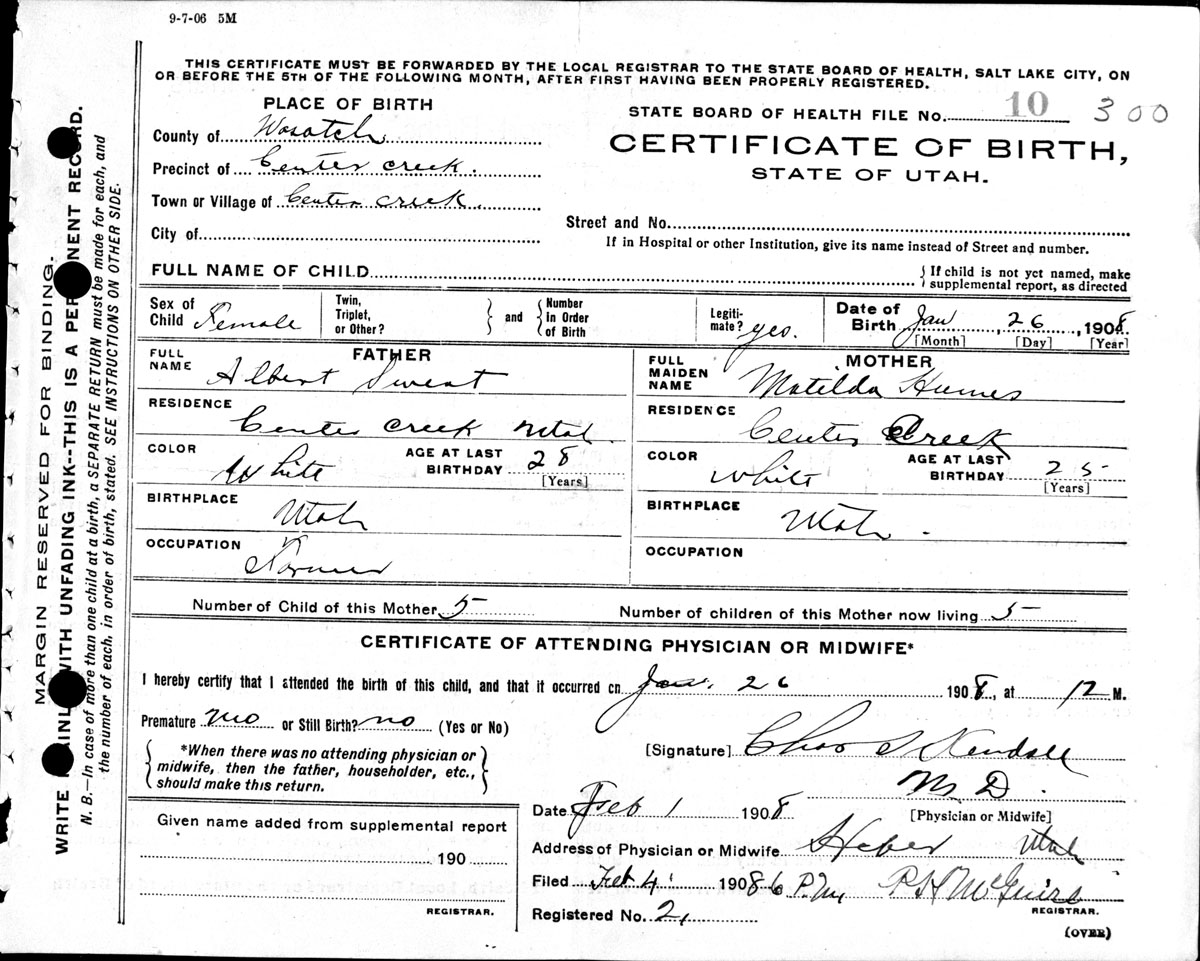 9-7-06 5M
THIS CERTIFICATE MUST BE FORWARDED BY THE LOCAL REGISTRAR TO THE STATE BOARD OF HEALTH, SALT LAKE CITY, ON
OR BEFORE THE 5TH OF THE FOLLOWING MONTH, AFTER FIRST HAVING BEEN PROPERLY REGISTERED.
PLACE OF BIRTH
County of Wasatch
Precinct of Center Creek.
Town or Village of Center Creek.
City of
STATE BOARD OF HEALTH FILE No. 10 300
CERTIFICATE OF BIRTH,
STATE OF UTAH.
Street and No.
If in Hospital or other Institution, give its name instead of Street and number.
FULL NAME OF CHILD
{ If child is not yet named, make
supplemental report, as directed
Sex of Child Female
Twin, Triplet, or Other? } and { Number In Order of Birth
Legiti-mate? yes.
Date of Birth Jan, 26, 1908.
[Month] [Day] [Year]
FATHER
FULL NAME Albert Sweat
RESIDENCE
Center Creek Utah.
COLOR White AGE AT LAST BIRTHDAY 28
[Years]
BIRTHPLACE
Utah
OCCUPATION
Farmer
MOTHER
FULL MAIDEN NAME Matilda
RESIDENCE
Center Creek
COLOR White AGE AT LAST BIRTHDAY 25
[Years]
BIRTHPLACE
Utah.
OCCUPATION
Number of Child of this Mother 5 Number of children of this Mother now living 5
CERTIFICATE OF ATTENDING PHYSICIAN OR MIDWIFE*
I hereby certify that I attended the birth of this child, and that it occurred on Jan. 26 1908, at 12 M.
Premature no or Still Birth? no (Yes or No)
{ *When there was no attending physician or
midwife, then the father, householder, etc.,
should make this return. }
[Signature] Chas Kendall
M D.
[Physician or Midwife]
Date Feb 1 1908
Address of Physician or Midwife Heber Utah
Filed Feb 4 1908 6 P.M. P H McGuire
REGISTRAR.
Registered No. 2,
(OVER)
Given name added from supplemental report
190
REGISTRAR.
MARGIN RESERVED FOR BINDING.
WRITE WITH UNFADING INK--THIS IS A RECORD.
N. B.—In case of more than one child at a birth, a SEPARATE RETURN must be made for each, and
the number of each, in order of birth, stated. SEE INSTRUCTIONS ON OTHER SIDE.